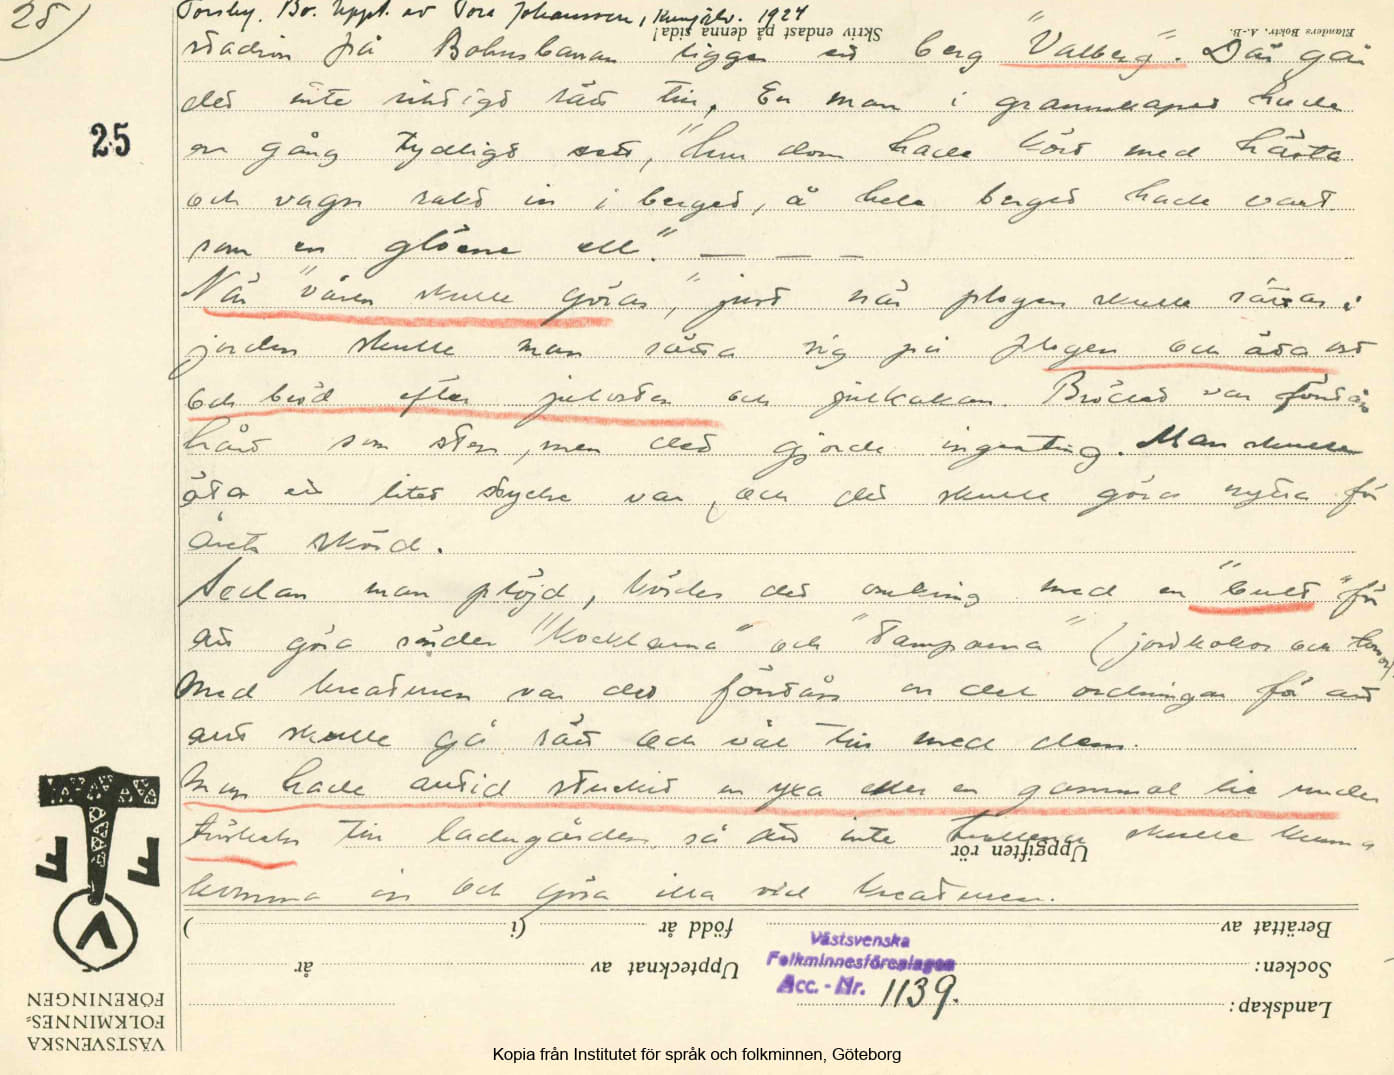 25)
Torsby. Bo. Uppt. av Tora Johansson, Kungälv. 1927
Skriv endast på denna sida!
Elanders Boktr. A.-B.
station på Bohusbanan ligger ett berg "Valberg". Där går
25
det inte riktigt rätt till. En man i grannskapet hade
en gång tydligt sett, "hur dom hade kört med hästa
och vagn rakt in i berget, å hela berget hade vart
som en glöene ell." — — —
När "våren skulle göras", just när plogen skulle sättas i
jorden skulle man sätta sig på plogen och äta ost
och bröd efter julosten och julkakan. Brödet var förstås
hårt som sten, men det gjorde ingenting. Man skulle
äta ett litet stycke var, och det skulle göra nytta för
årets skörd.
Sedan man plöjd, kördes det omkring med en "bult" för
att göra sönder "kocklarna" och "tamparna" (jordkokor och torvor)
Med kreaturen var det förstås en del ordningar för att
allt skulle gå rätt och väl till med dem.
Man hade alltid stuckit en yxa eller en gammal lie under
tröskeln till ladugården, så att inte trollena skulle kunna
Uppgiften rör
komma in och göra illa vid kreaturen.
Berättat av
född år
(i
)
Västsvenska
Folkminnesföreningen
Acc. - Nr. 1139.
Socken:
Upptecknat av
år
Landskap:
VÄSTSVENSKA
FOLKMINNES-
FÖRENINGEN
Kopia från Institutet för språk och folkminnen, Göteborg